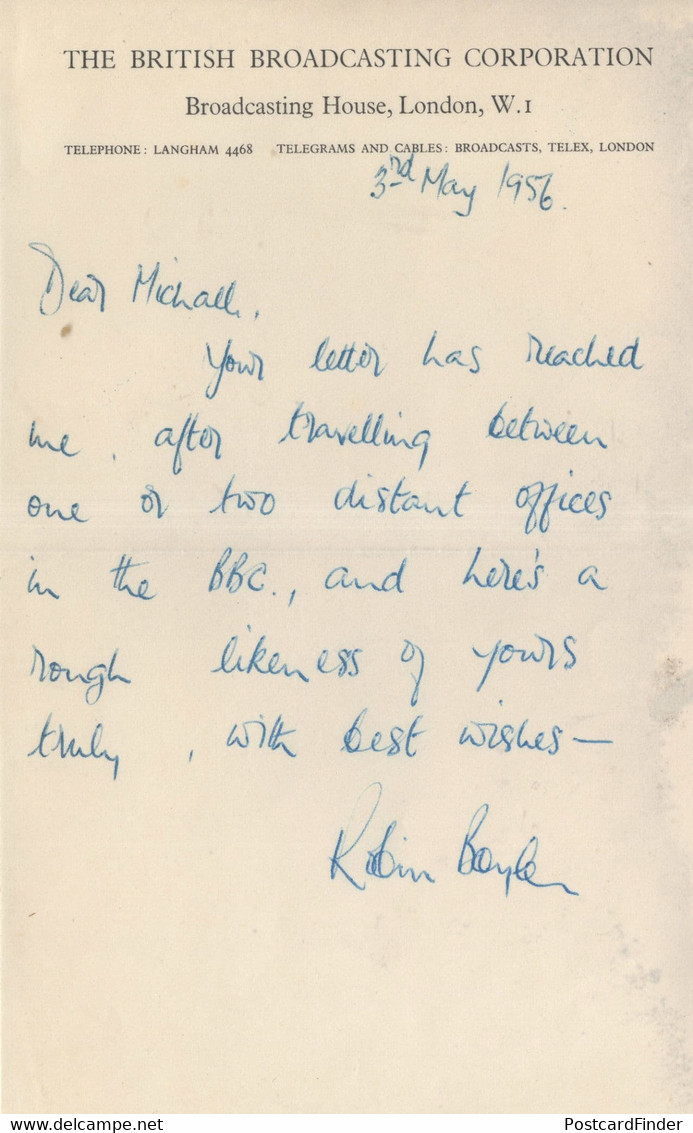 THE BRITISH BROADCASTING CORPORATION
Broadcasting House, London, W.1
TELEPHONE: LANGHAM 4468 TELEGRAMS AND CABLES: BROADCASTS, TELEX, LONDON
3rd May 1956.
Dear Michael,
Your letter has reached
me, after travelling between
one or two distant offices
in the BBC., and here's a
rough likeness of yours
truly, with best wishes—
Robin Boyle
delcampe.net
PostcardFinder